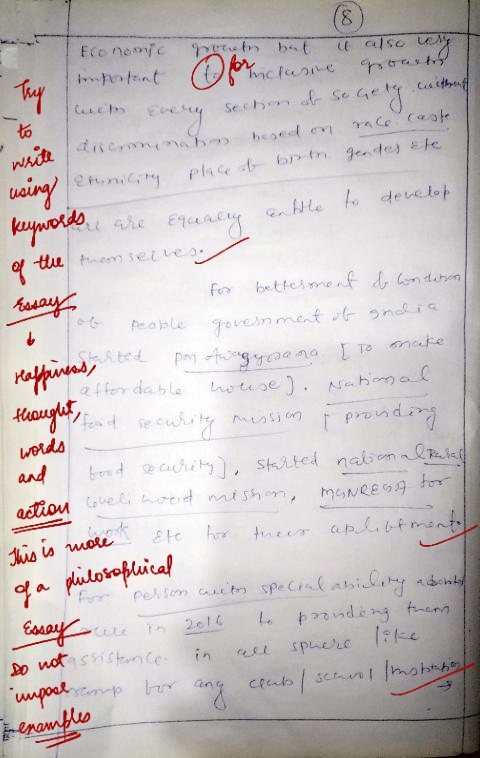 8
Economic growth but it also very
important to for inclusive growth
with every section of society without
discrimination based on race caste
Ethnicity place of birth gender etc
all are Equally entitle to develop
themselves.
For betterment of condition
of people government of India
started PM Awas yojana [To make
affordable house]. National
food security mission [providing
food security], started national Rural
liveli hood mission, MGNREGA for
work etc for their upliftment.
For person with special ability
in 2016 to providing them
assistance in all sphere like
ramp for any club/school/institution
Try
to
write
using
keywords
of the
Essay
↓
Happiness,
thought,
words
and
action
This is more
of a philosophical
Essay
so not
examples